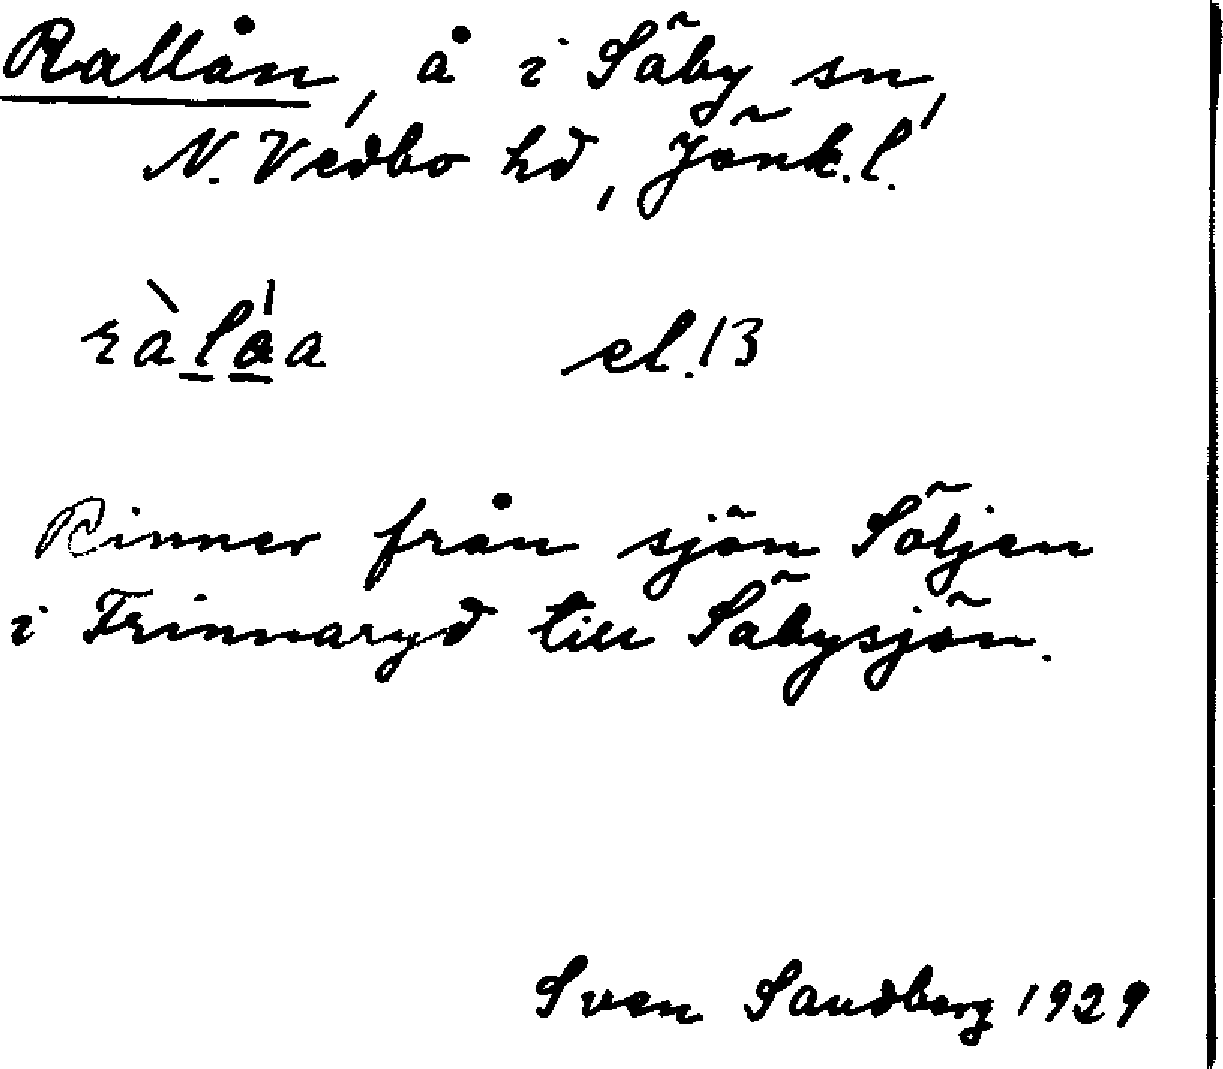 Rallån, å i Säby sn,
N. Vedbo hd, Jönk.l.
el. /3
Rinner från sjön Söljen
i Frinnaryd till Säbysjön.
Sven Sandberg 1929